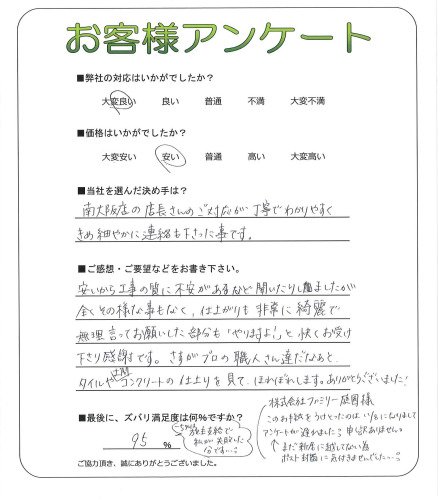 お客様アンケート
■弊社の対応はいかがでしたか？
大変良い 良い 普通 不満 大変不満
■価格はいかがでしたか？
大変安い 安い 普通 高い 大変高い
■当社を選んだ決め手は？
南大阪店の店長さんのご対応が丁寧でわかりやすく
きめ細やかに連絡も下さった事です。
■ご感想・ご要望などをお書き下さい。
安いから工事の質に不安があるなど聞いたりしましたが
全くその様な事もなく、仕上がりも非常に綺麗で
無理言ってお願いした部分も「やりますよ!」と快くお受け
下さり感謝です。さすがプロの職人さん達だなあと、
タイルや土間コンクリートの仕上りを見て、ほれぼれします。ありがとうございました!
■最後に、ズバリ満足度は何%ですか？
95 %
-5%は
施主支給で
私が失敗した
分です…?
株式会社ファミリー庭園様
このお手紙をうけとったのは になりまして
アンケートが遅れました? 申し訳ありません
↑まだ新居に越してない為
ポスト封筒に気付きませんでした…?
ご協力頂き、誠にありがとうございました。